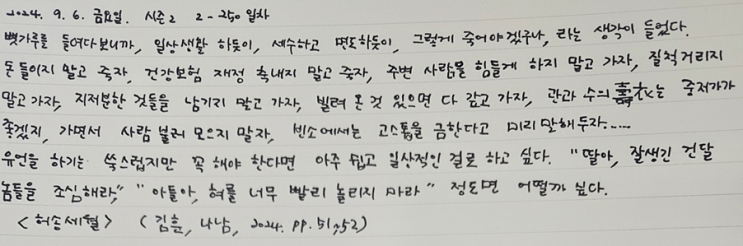 2024. 9. 6. 금요일. 시즌2 2-250일차
뼛가루를 들여다보니까, 일상생활 하듯이, 세수하고 면도하듯이, 그렇게 죽어야겠구나, 라는 생각이 들었다.
돈 들이지 말고 죽자, 건강보험 재정 축내지 말고 죽자, 주변 사람을 힘들게 하지 말고 가자, 질척거리지
말고 가자, 지저분한 것들을 남기지 말고 가자, 빌려 온 것 있으면 다 갚고 가자, 관과 수의는 중저가가
좋겠지, 가면서 사람 불러 모으지 말자, 빈소에서는 고스톱을 금한다고 미리 말해두자.....
유언을 하기는 쑥스럽지만 꼭 해야 한다면 아주 쉽고 일상적인 걸로 하고 싶다. "딸아, 잘생긴 건달
놈들을 조심해라," "아들아, 혀를 너무 빨리 놀리지 마라" 정도면 어떨까 싶다.
<허송세월> (김훈, 나남, 2024. pp.51,52)